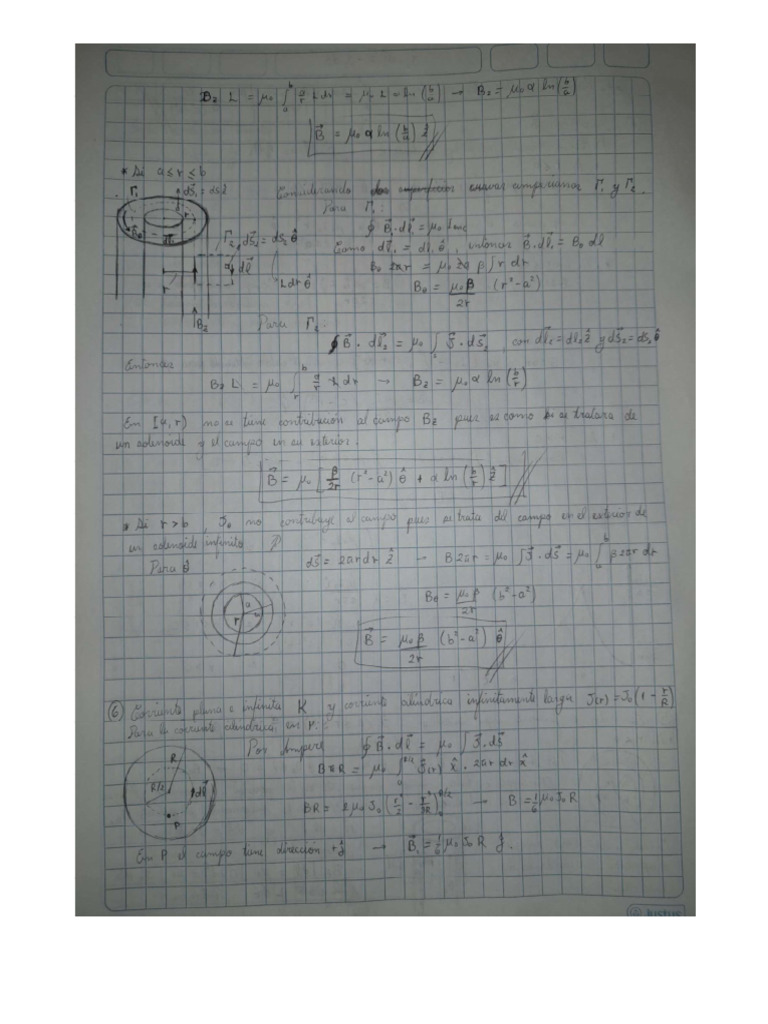 B₂ L = μ₀ ∫ₐᵇ α/r L dr = μ₀ L α ln (b/a) → B₂ = μ₀ α ln(b/a)
B⃗ = μ₀ α ln(b/a) ẑ
* Si a ≤ r ≤ b
Γ₁ dS⃗₁ = dS₁ ẑ
Considerando curvas amperianas Γ₁ y Γ₂.
Para Γ₁:
∮ B⃗₁·dl⃗ = μ₀ Ienc
Como dl⃗₁ = dl₁ θ̂, entonces B⃗·dl⃗₁ = Bθ dl
Γ₂ dS⃗₂ = dS₂ θ̂
dl⃗
L dr θ̂
r
B₂
Bθ 2πr = μ₀ 2π β ∫ r dr
Bθ = μ₀β/2r (r² − a²)
Para Γ₂:
∮ B⃗ · dl⃗₂ = μ₀ ∫ J⃗ · dS⃗₂ con dl⃗₂ = dl₂ ẑ y dS⃗₂ = dS₂ θ̂
Entonces
B₂ L = μ₀ ∫ᵣᵇ α/r L dr → B₂ = μ₀ α ln(b/r)
En [a, r) no se tiene contribución al campo B₂ pues es como si se tratara de
un solenoide y el campo en su exterior.
B⃗ = μ₀ [ β/2r (r² − a²) θ̂ + α ln(b/r) ẑ ]
* Si r > b, Jθ no contribuye el campo pues se trata del campo en el exterior de
un solenoide infinito
Para
dS⃗ = 2πr dr ẑ → B 2πr = μ₀ ∫ J⃗ · dS⃗ = μ₀ ∫ₐᵇ β 2πr dr
a
r
Bθ = μ₀β/2r (b² − a²)
B⃗ = μ₀β/2r (b² − a²) θ̂
⑥ Corriente plana e infinita K y corriente cilíndrica infinitamente larga J(r) = J₀(1 − r/R)
Para la corriente cilíndrica, en P:
Por Ampere ∮ B⃗ · dl⃗ = μ₀ ∫ J⃗ · dS⃗
R
R/2
dl⃗
P
BπR = μ₀ ∫₀^(R/2) J(r) x̂ · 2πr dr x̂
BR = 2μ₀J₀ (r²/2 − r³/3R)₀^(R/2) → B = 1/6 μ₀J₀R
En P el campo tiene dirección +ŷ → B⃗₁ = 1/6 μ₀ J₀ R ŷ.
Justus